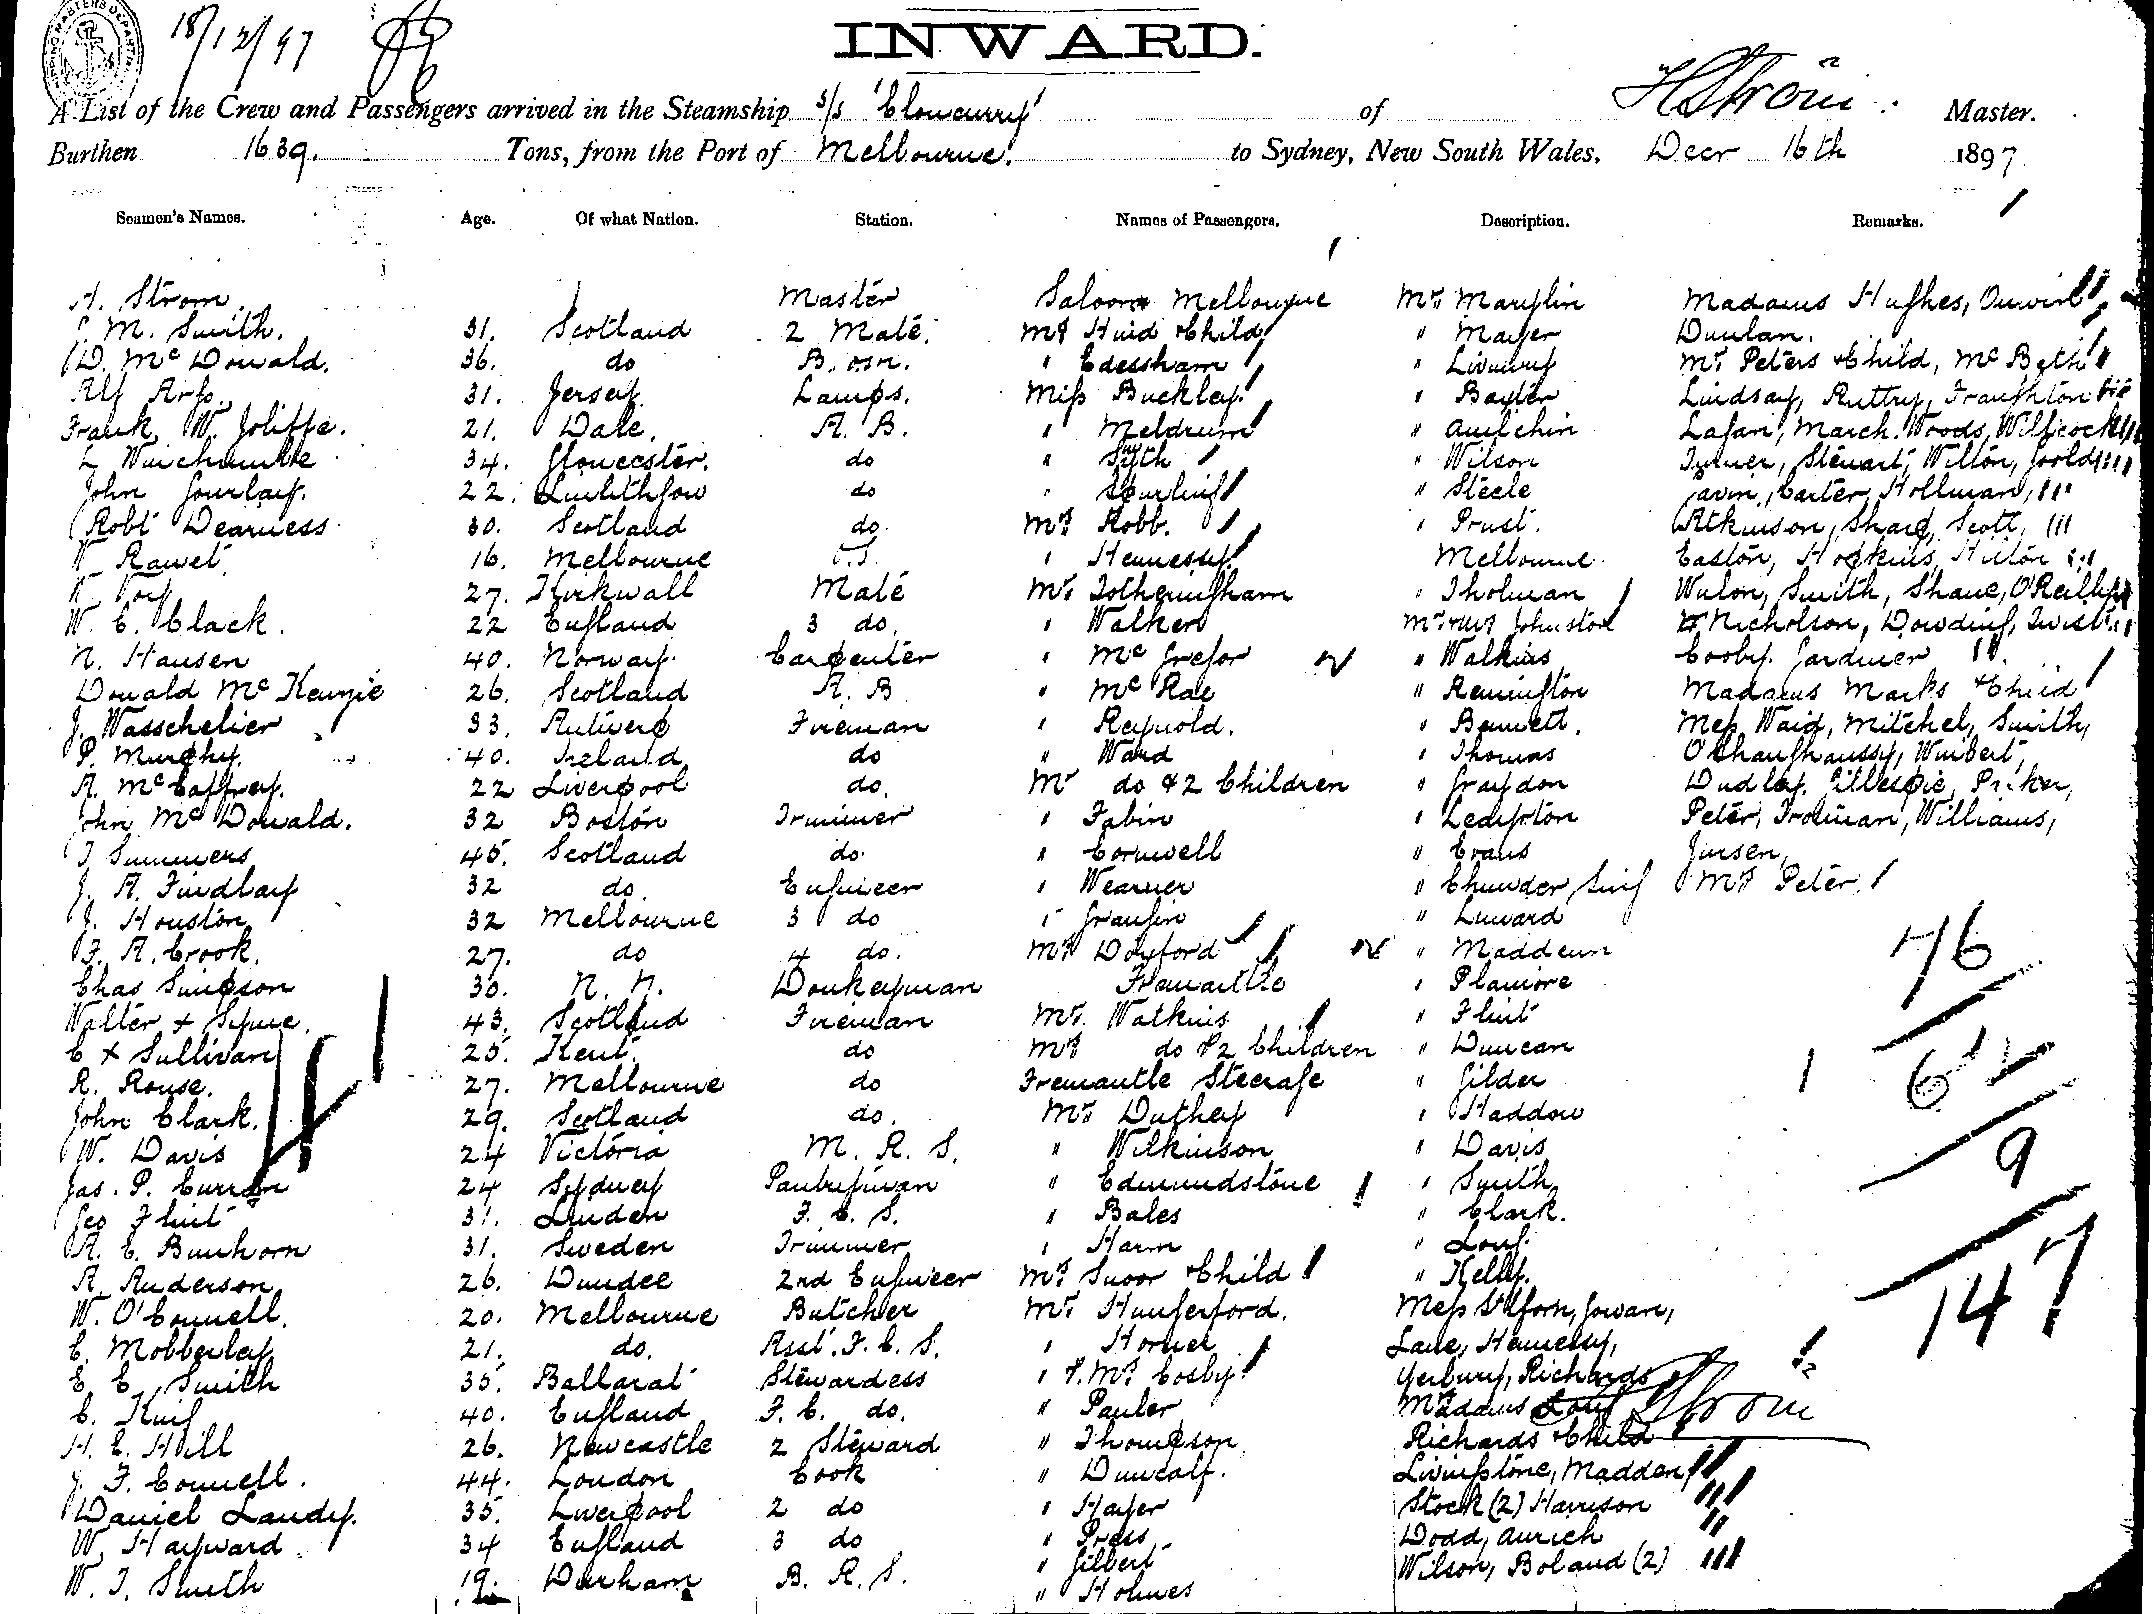 18/12/97
INWARD.
A List of the Crew and Passengers arrived in the Steamship s/s 'Cloncurry' of HStröm. Master.
Burthen 1639. Tons, from the Port of Melbourne. to Sydney, New South Wales, Decr 16th 1897
Seamen's Names. Age. Of what Nation. Station. Names of Passengers. Description. Remarks.
Strom. Master Saloon Melbourne Mr Madams Hughes,
M. Smith. 31. Scotland 2 Mate. Mrs & Child " Mayer
D. McDonald. 36. do B.osn. " " Mr Peters & Child, McBeth
Alf Arp. 31. Jersey. Lamps. Miss Buckley. " Baxter Lindsay, Ruttry, Traughton
Frank W. Joliffe. 21. Dale. A. B. " Meldrum " March. Woods, Willicock
34. Gloucester. do " " Wilson Turner, Stewart, Wilton,
John Gourlay. 22. Linlithgow do " " Steele Carter, Hollman,
Robt Dearness 30. Scotland do. Mrs Robb. " Prust. Atkinson, Sharp, Scott,
Rawet. 16. Melbourne " Hennessy. Melbourne Easton, Hopkins, Hilton
27. Kirkwall Mate Mr. Fotheringham " Tholman Smith, Shane, O'Reilly
W. C. Clack. 22 England 3 do. " Walker Mr & Mrs Johnston Nicholson, Dowding, Twist
N. Hansen 40. Norway. Carpenter " McGregor " Watkins Cosby. Gardiner
Donald McKenzie 26. Scotland A. B " McRae " Remington Madams Marks & Child
J. Wasschelier 33. Antwerp Fireman " Reynold. " Bennett. Mess Waid, Mitchel, Smith,
P. Murphy. 40. Ireland do " Ward " Thomas O'Shaughnassy,
A. McCaffrey. 22 Liverpool do. Mrs do & 2 Children " Graydon Dudley. Gillespie,
John McDonald. 32 Boston Trimmer " Fabin " Peter, Trotman, Williams,
Summers 45. Scotland do. " Cornwell " Evans Jensen,
J. A. Findlay 32 do. Engineer " Wearner " Chunder Sing Mrs Peter.
J. Houston 32 Melbourne 3 do " "
F. A. Crook. 27. do 4 do. Mrs " 76
Chas Simpson 30. N. N. Donkeyman Fremantle "
Walter + Fireman 43. Scotland Mr. Watkins " Flint
C + Sullivan 25. Kent. do Mrs do & 2 Children " Duncan
R. Rouse. 27. Melbourne do Fremantle Steerage " Gilder
John Clark. 29. Scotland do. Mr Duthey " Haddow
W. Davis 24 Victoria M. R. S. " Wilkinson " Davis 9
Jas. P. Curran 24 Sydney Pantryman " Edmundstone " Smith
Geo Flint 31. F. C. S. " Bales " Clark.
A. C. Bunhorn 31. Sweden Trimmer " Harm " Long.
A. Anderson 26. Dundee 2nd Engineer Mrs & Child " Kelly. 147
W. O'Connell. 20. Melbourne Butcher Mr. Hungerford. Mess Gowan,
C. Mobberley 21. do. Asst. F. C. S. " Horner Lane, Hennessy,
E. E. Smith 35. Ballarat Stewardess " & Mrs Cosby Yerbury, Richards
C. King 40. England F. C. do. " Pauler Madams Ström
H. E. Hill 26. Newcastle 2 Steward " Thompson Richards & Child
J. F. Connell. 44. London Cook " Duncalf. Livingstone, Madden
Daniel Landy. 35. Liverpool 2 do " Hayer Stock (2) Harrison
W. Hayward 34 England 3 do " Press Dodd, Aurich
W. J. Smith 19. Durham B. R. S. " Gilbert Wilson, Boland (2)
" Holmes